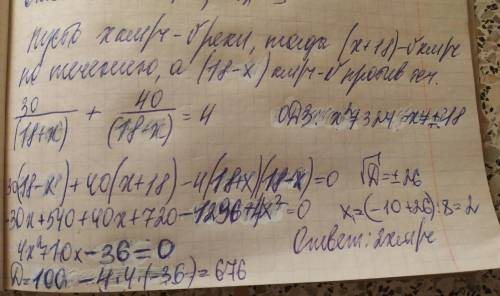 Пусть х км/ч – v реки, тогда (х+18) – v км/ч
по течению, а (18-х) км/ч – v против теч.
30/(18+х) + 40/(18+х) = 4 ОДЗ: х²≠324 х≠±18
30(18-х)+40(х+18)-4(18+х)(18-х)=0 √D=±26
-30х+540+40х+720-1296+4х²=0 х=(-10+26):8=2
4х²+10х-36=0 Ответ: 2км/ч
D=100-4·4·(-36)=676